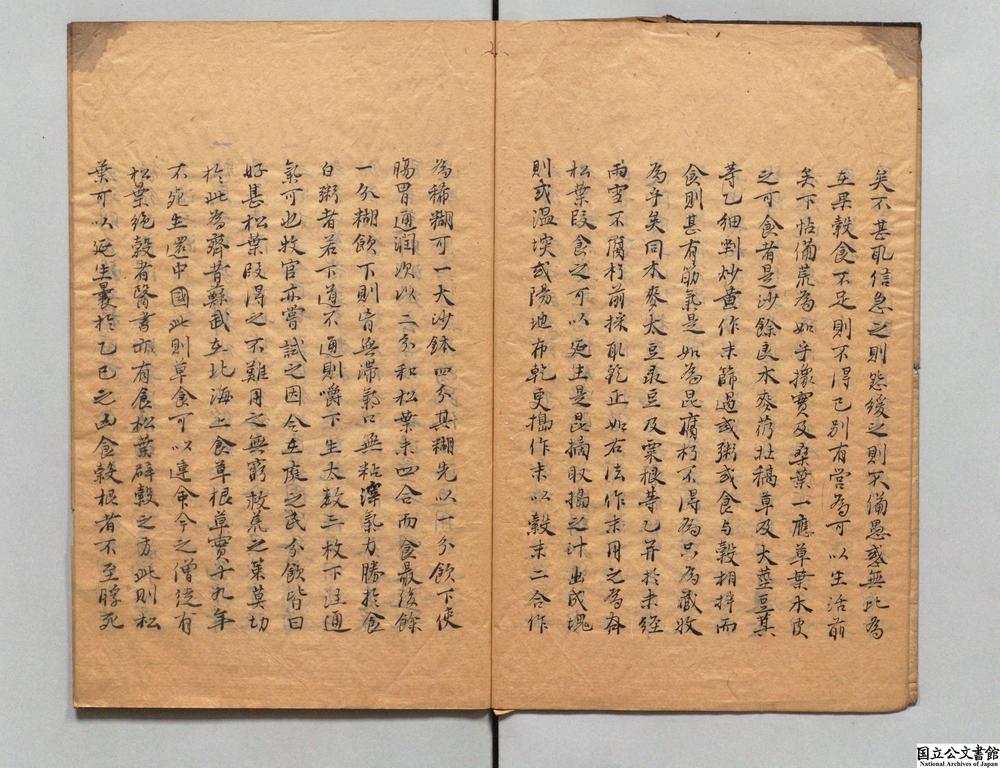 矣不甚乱信急之則怨緩之則不備愚惑無此為
在果穀食不足則不得已別有営為可以生活前
矣下帖備荒為如乎橡實及桑葉一應草葉木皮
之可食者是沙餘良木麥荐壮稿草及大莖豆其
等乙細剉炒黄作末篩過或粥或食与穀相拌而
食則甚有筋氣是如為昆腐朽不得為只為蔵收
為乎矣同木麥太豆菉豆及栗根等乙并於未経
雨雪不腐朽前採取乾正如右法作末用之為有
松葉段食之可以延生是昆摘取搗之汁出成塊
則或温堗或陽地布乾更搗作末以穀末二合作
為稀糊可一大沙鉢四分其糊先以一分飲下使
腸胃通潤次以二分和松葉末四合而食最後餘
一分糊飲下則皆無滞氣口無粘滓氣力勝於食
白粥者若下道不通則嚼下生太数三枚下注通
氣可也牧官亦嘗試之因令在庭之民分飲皆曰
好甚松葉段得之不難用之無窮救荒之策莫切
於此為齊昔蘇武在北海上食草根草實十九年
不死生還中國此則草食可以連命今之僧徒有
松葉絶穀者醫書亦有食松葉辟穀之方此則松
葉可以延生曩於乙巳之凶食穀根者不至脬死
国立公文書館
National Archives of Japan